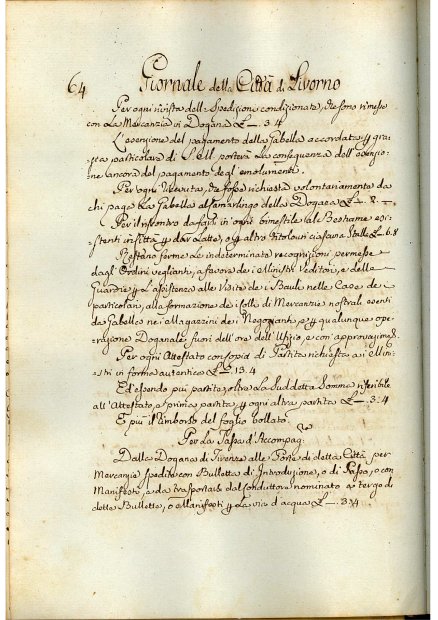 64 Giornale della Città di Livorno
Per ogni rivista delle Spedizioni condizionate, che sono rimesse
con La Mercanzia in Dogana £ _. 3. 4
L'esenzione del pagamento della Gabella accordata p gra-
zia particolare di porterà La conseguenza dell'esenzio-
ne ancora del pagamento degl'emolumenti.
Per ogni Ricevuta, che fosse richiesta volontariamente da
chi paga La Gabella al Camarlingo della Dogana £ _.
Per il riscontro da farsi in ogni bimestre sale Bestiame esi-
stenti in Città p dar Latte, o p altro titolo in ciascuna Stalla £ _. 6. 8
Restano ferme Le indeterminate recognizioni permesse
dagl'Ordini veglianti, a favore dei Ministri Veditori, e delle
Guardie p L'assistenza alle Visite dei Bauli nelle Case dei
particolari, alla formazione dei Colli di Mercanzie nostrali esenti
da Gabella nei Magazzini dei Negozianti, e p qualunque ope-
razione Doganale fuori dell'ore dell'Ufizio, e con approvazione
Per ogni Attestato con copia di Partita richiesta ai Mini-
stri in forma autentica £ _. 13. 4
Ed essendo più partite, oltre La Suddetta Somma referibile
all'Attestato, e prima partita, p ogni altra partita £ _. 3. 4
E più il rimborso del foglio bollato.
Per La Tassa d'Accompag.
Dalla Dogana di Firenze alle Porte di detta Città per
Mercanzie spedite con Bulletta di Introduzione, o di Passo, o con
Manifesti, e da trasportarsi dal conduttore nominato a tergo di
dette Bullette, o Manifesti p La via d'acqua £ _. 3. 4